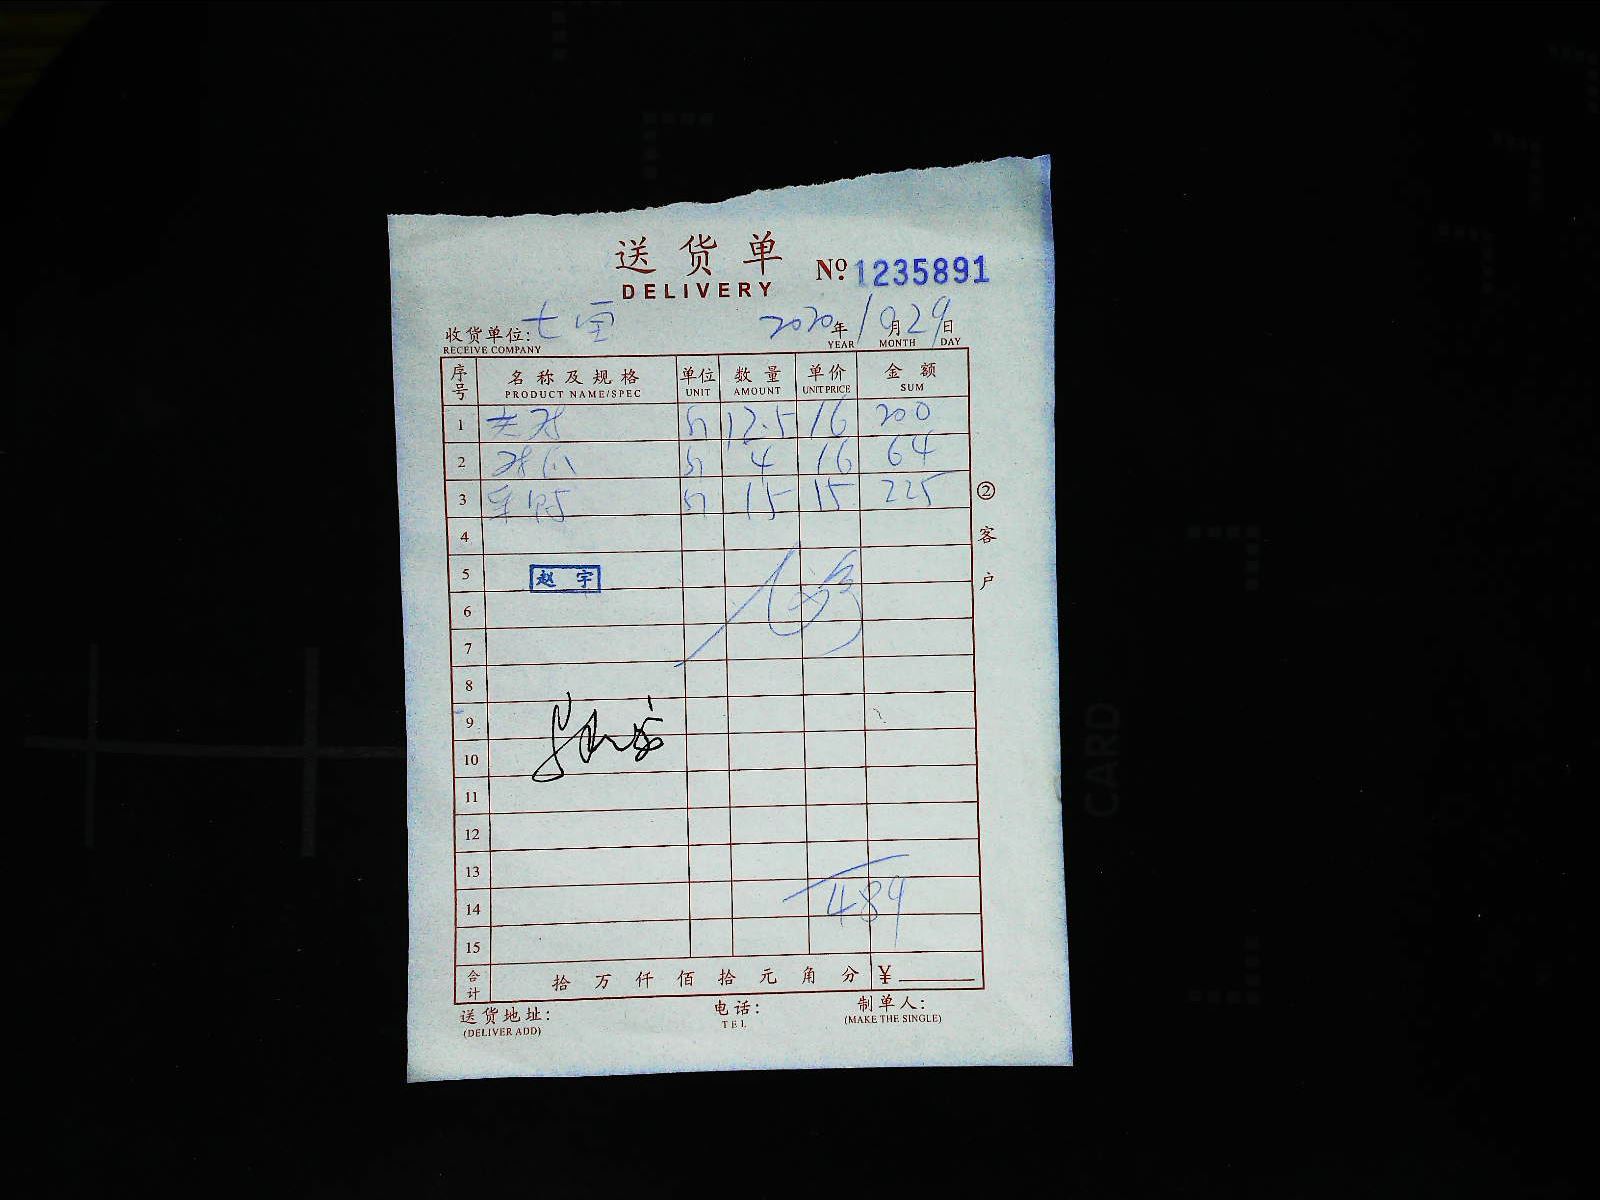 送货单 No 1235891
DELIVERY
收货单位: 七 2020年10月29日
RECEIVE COMPANY YEAR MONTH DAY
序号 名称及规格 单位 数量 单价 金额
PRODUCT NAME/SPEC UNIT AMOUNT UNIT PRICE SUM
1 12.5 16 200
2 4 16 64
3 15 15 225
4
5 赵宇
6
7
8
9
10
11
12
13
14 489
15
合计 拾万仟佰拾元角分 ¥
送货地址: 电话: 制单人:
(DELIVER ADD) TEL (MAKE THE SINGLE)
②客户
CARD